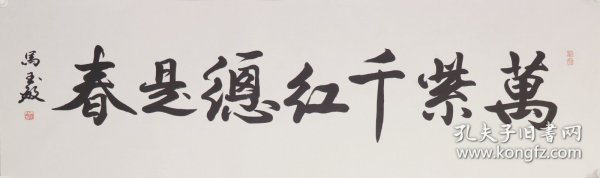 萬紫千紅總是春
馬玉敏
孔夫子旧书网
www.kongfz.com